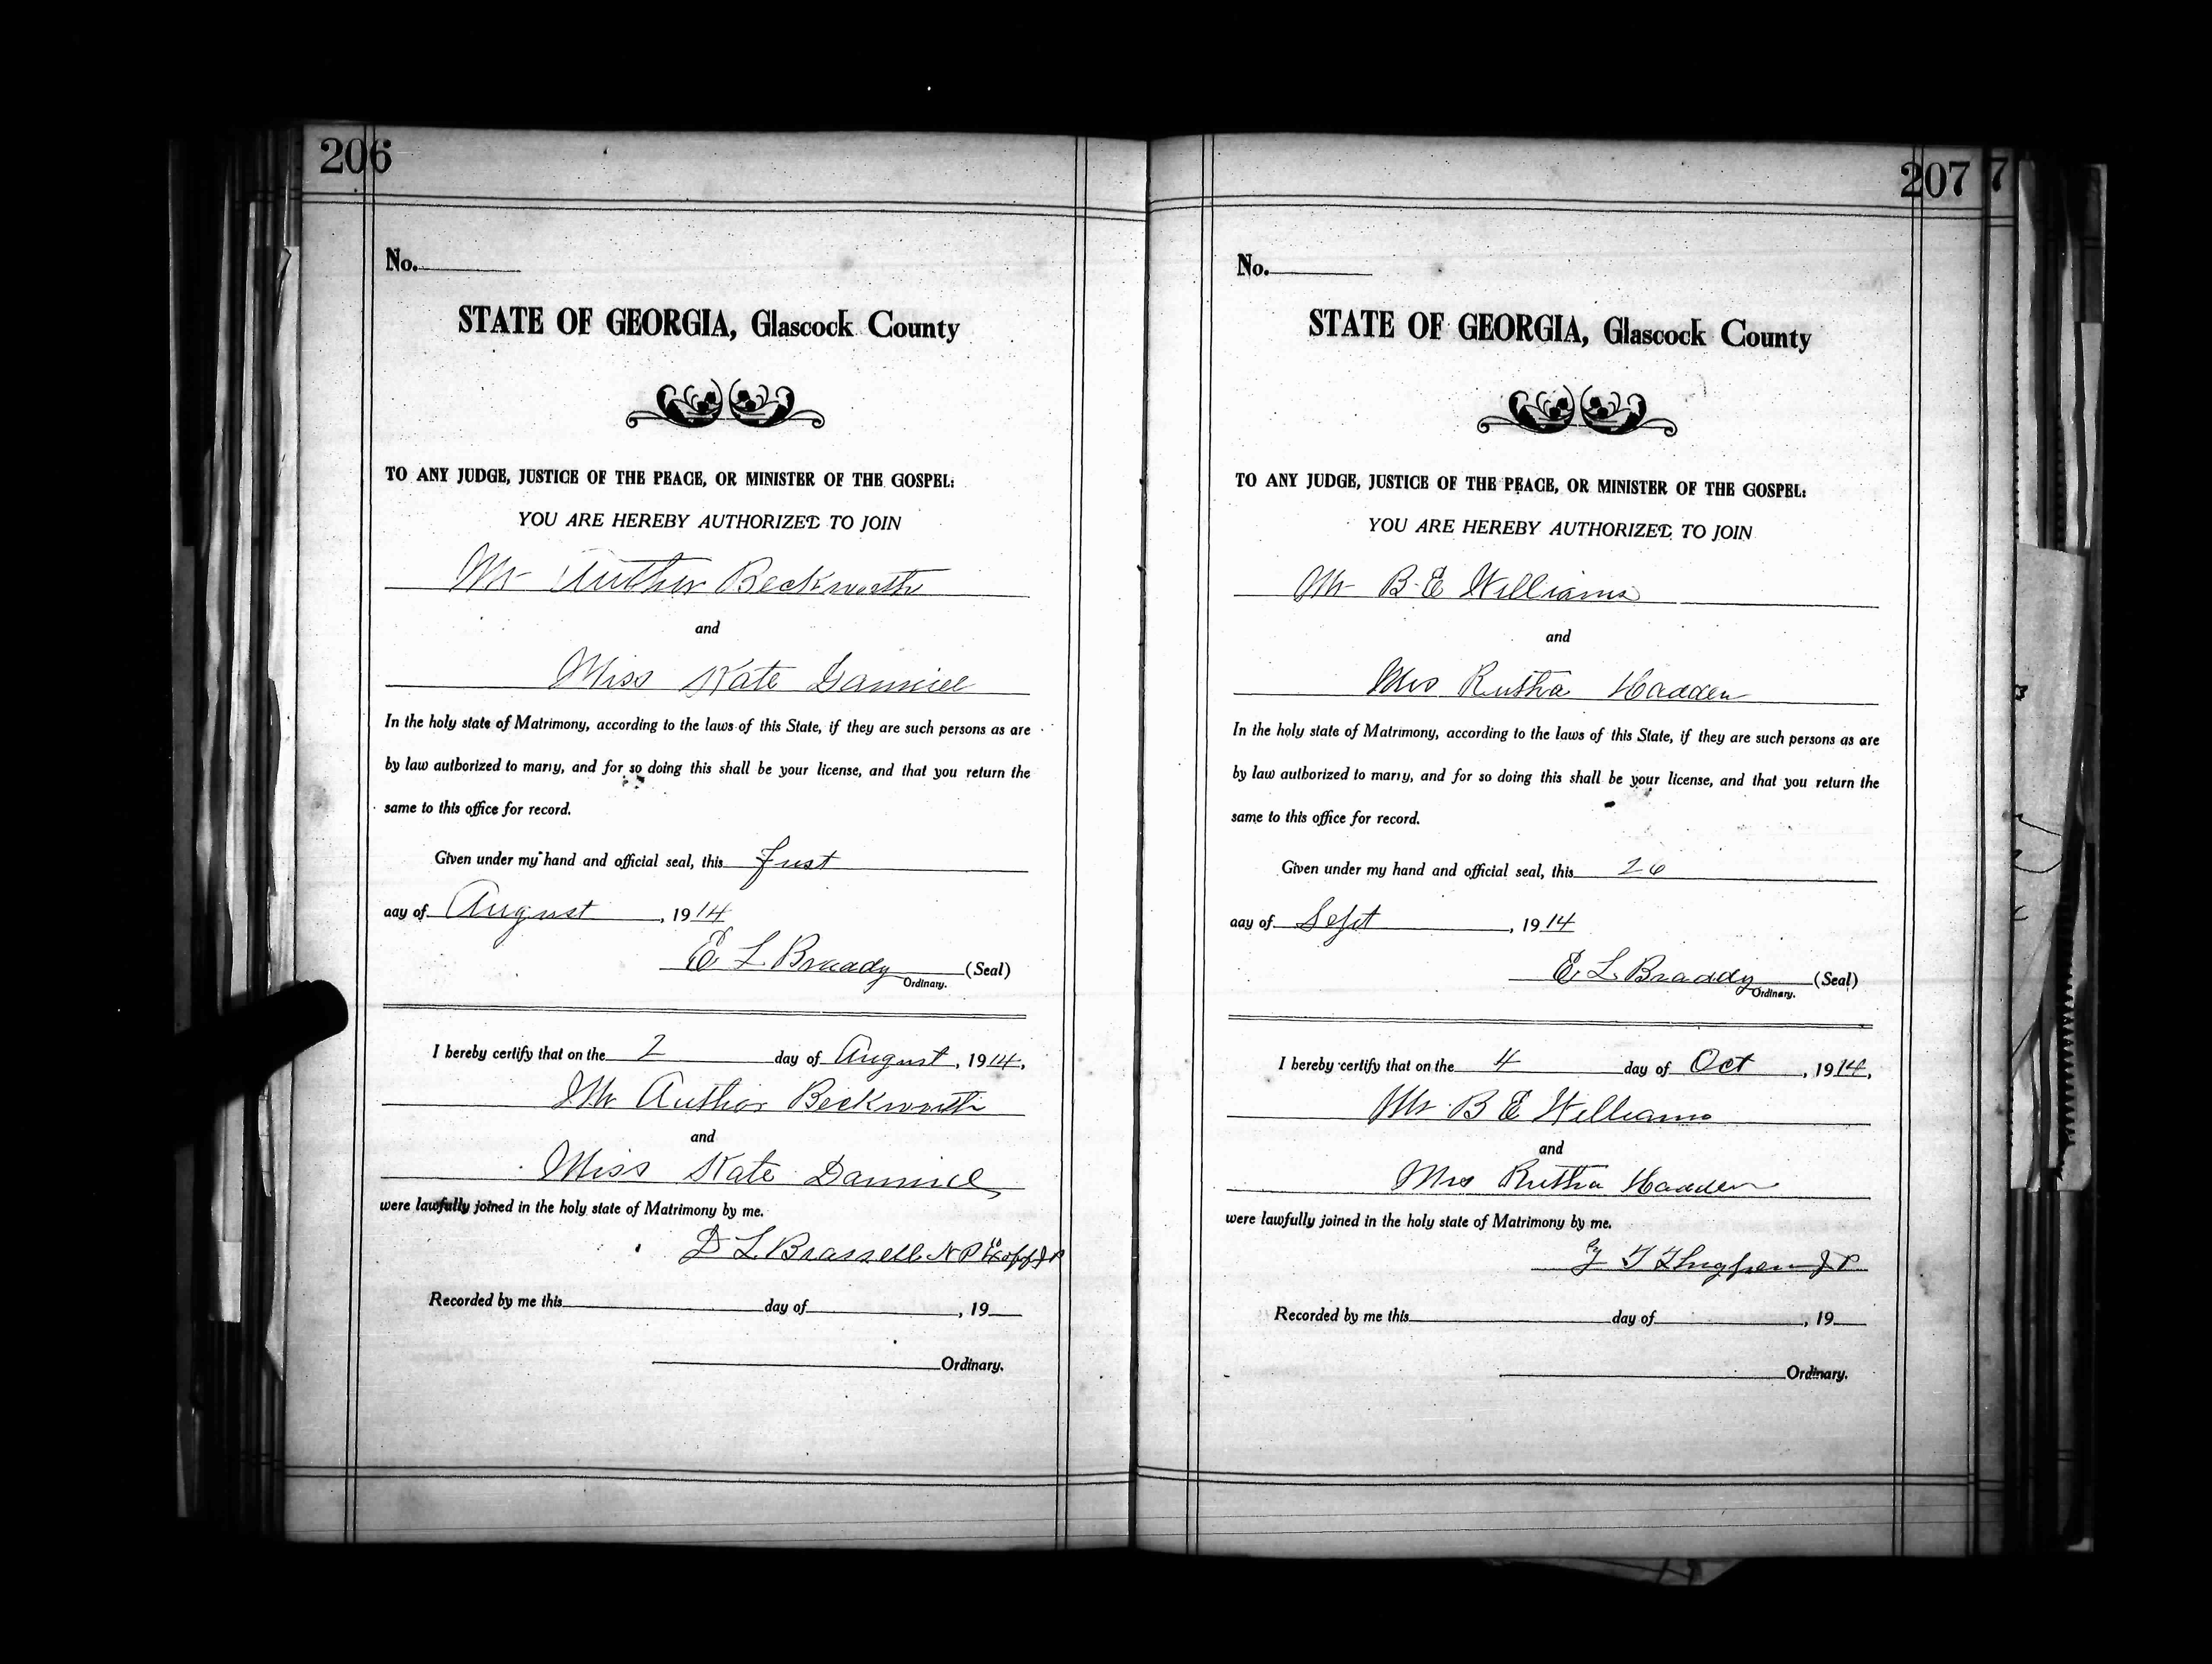 206
No.
STATE OF GEORGIA, Glascock County
TO ANY JUDGE, JUSTICE OF THE PEACE, OR MINISTER OF THE GOSPEL:
YOU ARE HEREBY AUTHORIZED TO JOIN
Mr Author Beckworth
and
Miss Kate Danniel
In the holy state of Matrimony, according to the laws of this State, if they are such persons as are
by law authorized to marry, and for so doing this shall be your license, and that you return the
same to this office for record.
Given under my hand and official seal, this first
day of August, 1914
E L Braddy (Seal)
Ordinary.
I hereby certify that on the 2 day of August, 1914,
Mr Author Beckworth
and
Miss Kate Danniel
were lawfully joined in the holy state of Matrimony by me.
D L Brassell N P Exoff J P
Recorded by me this day of , 19
Ordinary.
207
7
No.
STATE OF GEORGIA, Glascock County
TO ANY JUDGE, JUSTICE OF THE PEACE, OR MINISTER OF THE GOSPEL:
YOU ARE HEREBY AUTHORIZED TO JOIN
Mr B E Williams
and
Mrs Rutha Hadden
In the holy state of Matrimony, according to the laws of this State, if they are such persons as are
by law authorized to marry, and for so doing this shall be your license, and that you return the
same to this office for record.
Given under my hand and official seal, this 26
day of Sept, 1914
E L Braddy (Seal)
Ordinary.
I hereby certify that on the 4 day of Oct, 1914,
Mr B E Williams
and
Mrs Rutha Hadden
were lawfully joined in the holy state of Matrimony by me.
J P
Recorded by me this day of , 19
Ordinary.